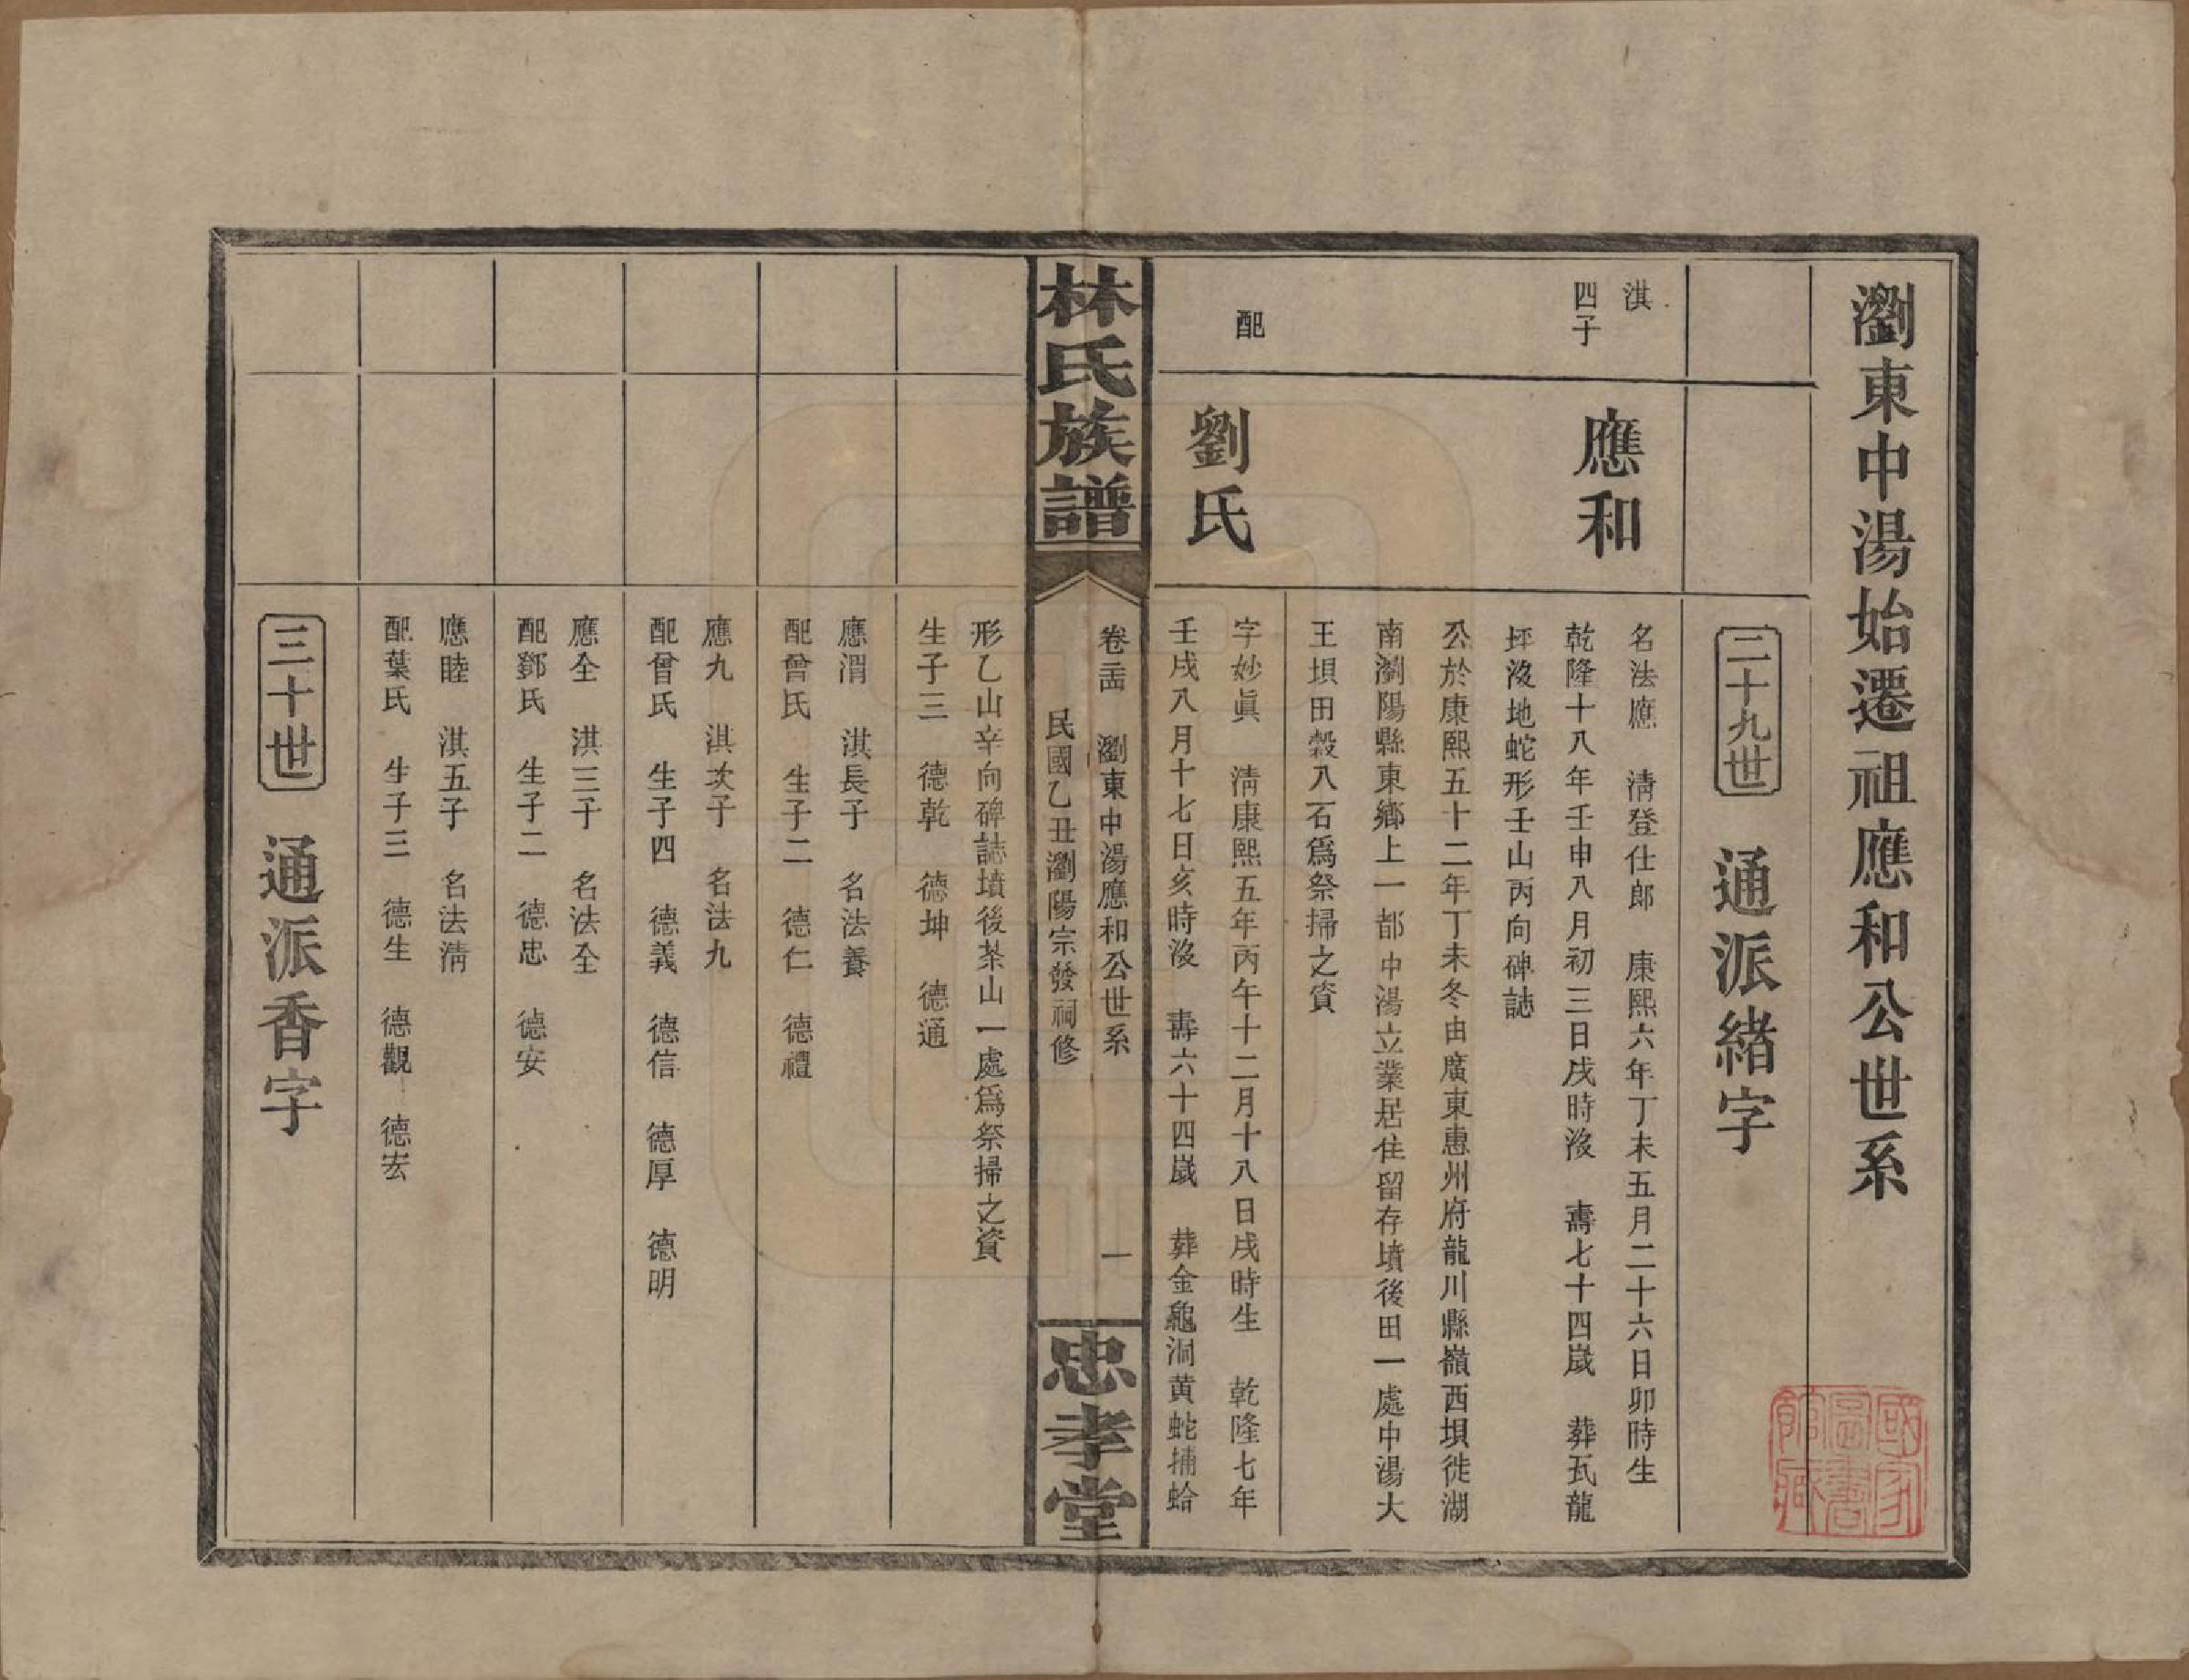 瀏東中湯始遷祖應和公世系
二十九世　通派緒字
淇
四子
應和
名法應　清登仕郎　康熙六年丁未五月二十六日卯時生
乾隆十八年壬申八月初三日戌時沒　壽七十四歲　葬瓦龍
坪沒地蛇形壬山丙向碑誌
公於康熙五十二年丁未冬由廣東惠州府龍川縣嶺西垻徙湖
南瀏陽縣東鄉上一都中湯立業居住留存墳後田一處中湯大
王垻田穀八石爲祭掃之資
配
劉氏
字妙眞　清康熙五年丙午十二月十八日戌時生　乾隆七年
壬戌八月十七日亥時沒　壽六十四歲　葬金龜洞黃蛇捕蛤
林氏族譜
卷三四　瀏東中湯應和公世系　一
民國乙丑瀏陽宗發祠修
忠孝堂
形乙山辛向碑誌墳後茶山一處爲祭掃之資
生子三　德乾　德坤　德通
應渭　淇長子　名法養
配曾氏　生子二　德仁　德禮
應九　淇次子　名法九
配曾氏　生子四　德義　德信　德厚　德明
應全　淇三子　名法全
配鄧氏　生子二　德忠　德安
應睦　淇五子　名法淸
配葉氏　生子三　德生　德觀　德宏
三十世　通派香字
國家
圖書
館藏